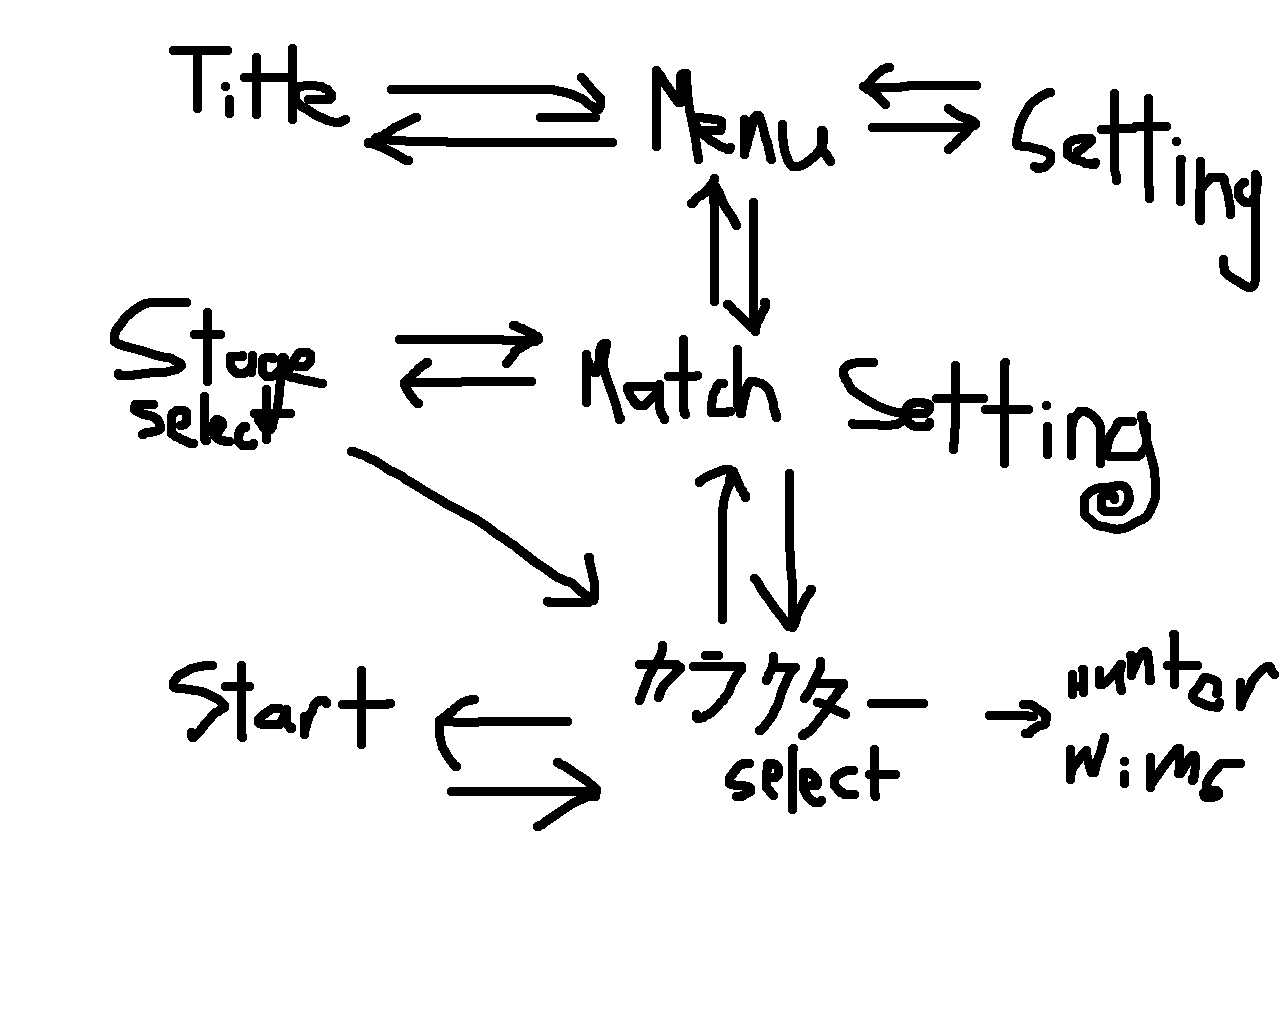 Title
Menu
Setting
Stage
select
Match Setting
Start
カラクター
select
Huntor
wims